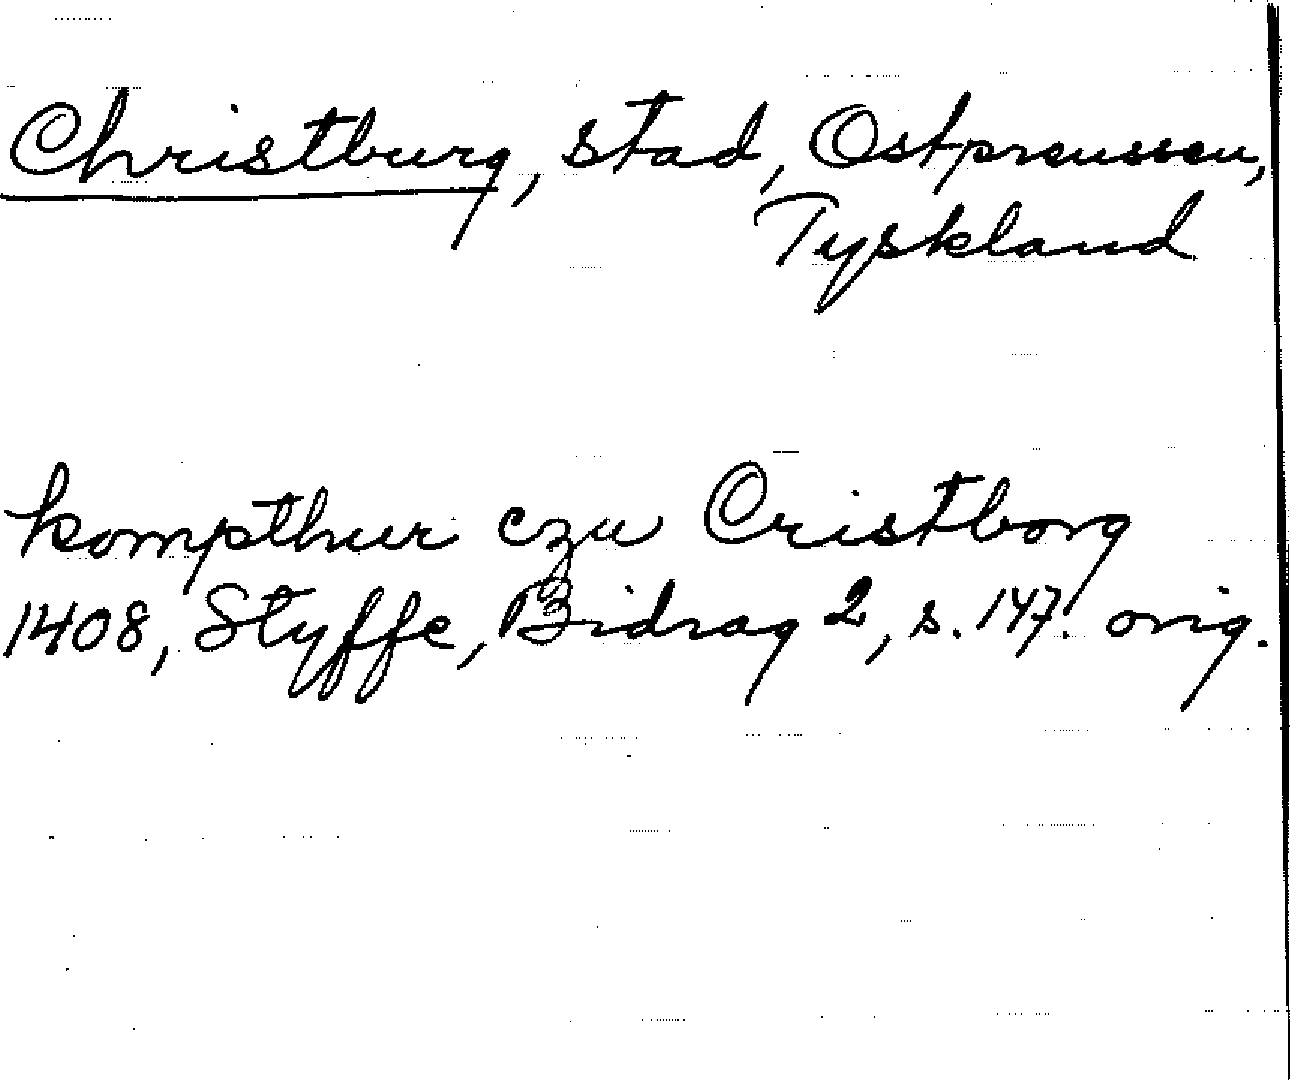 Christburg, stad, Ostpreussen,
Tyskland
kompthur czu Cristborg
1408, Styffe, Bidrag 2, s. 147. orig.